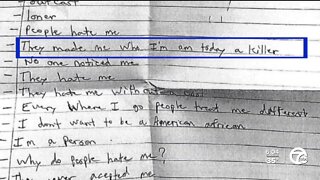 outcast
loner
People hate me
They made me who I'm am today a killer
No one noticed me
They hate me
They hate me with out a cost
Every Where I go people treat me different
I don't want to be a American african
I'm a person
Why do people hate me?
They never accepted me
6:04
7